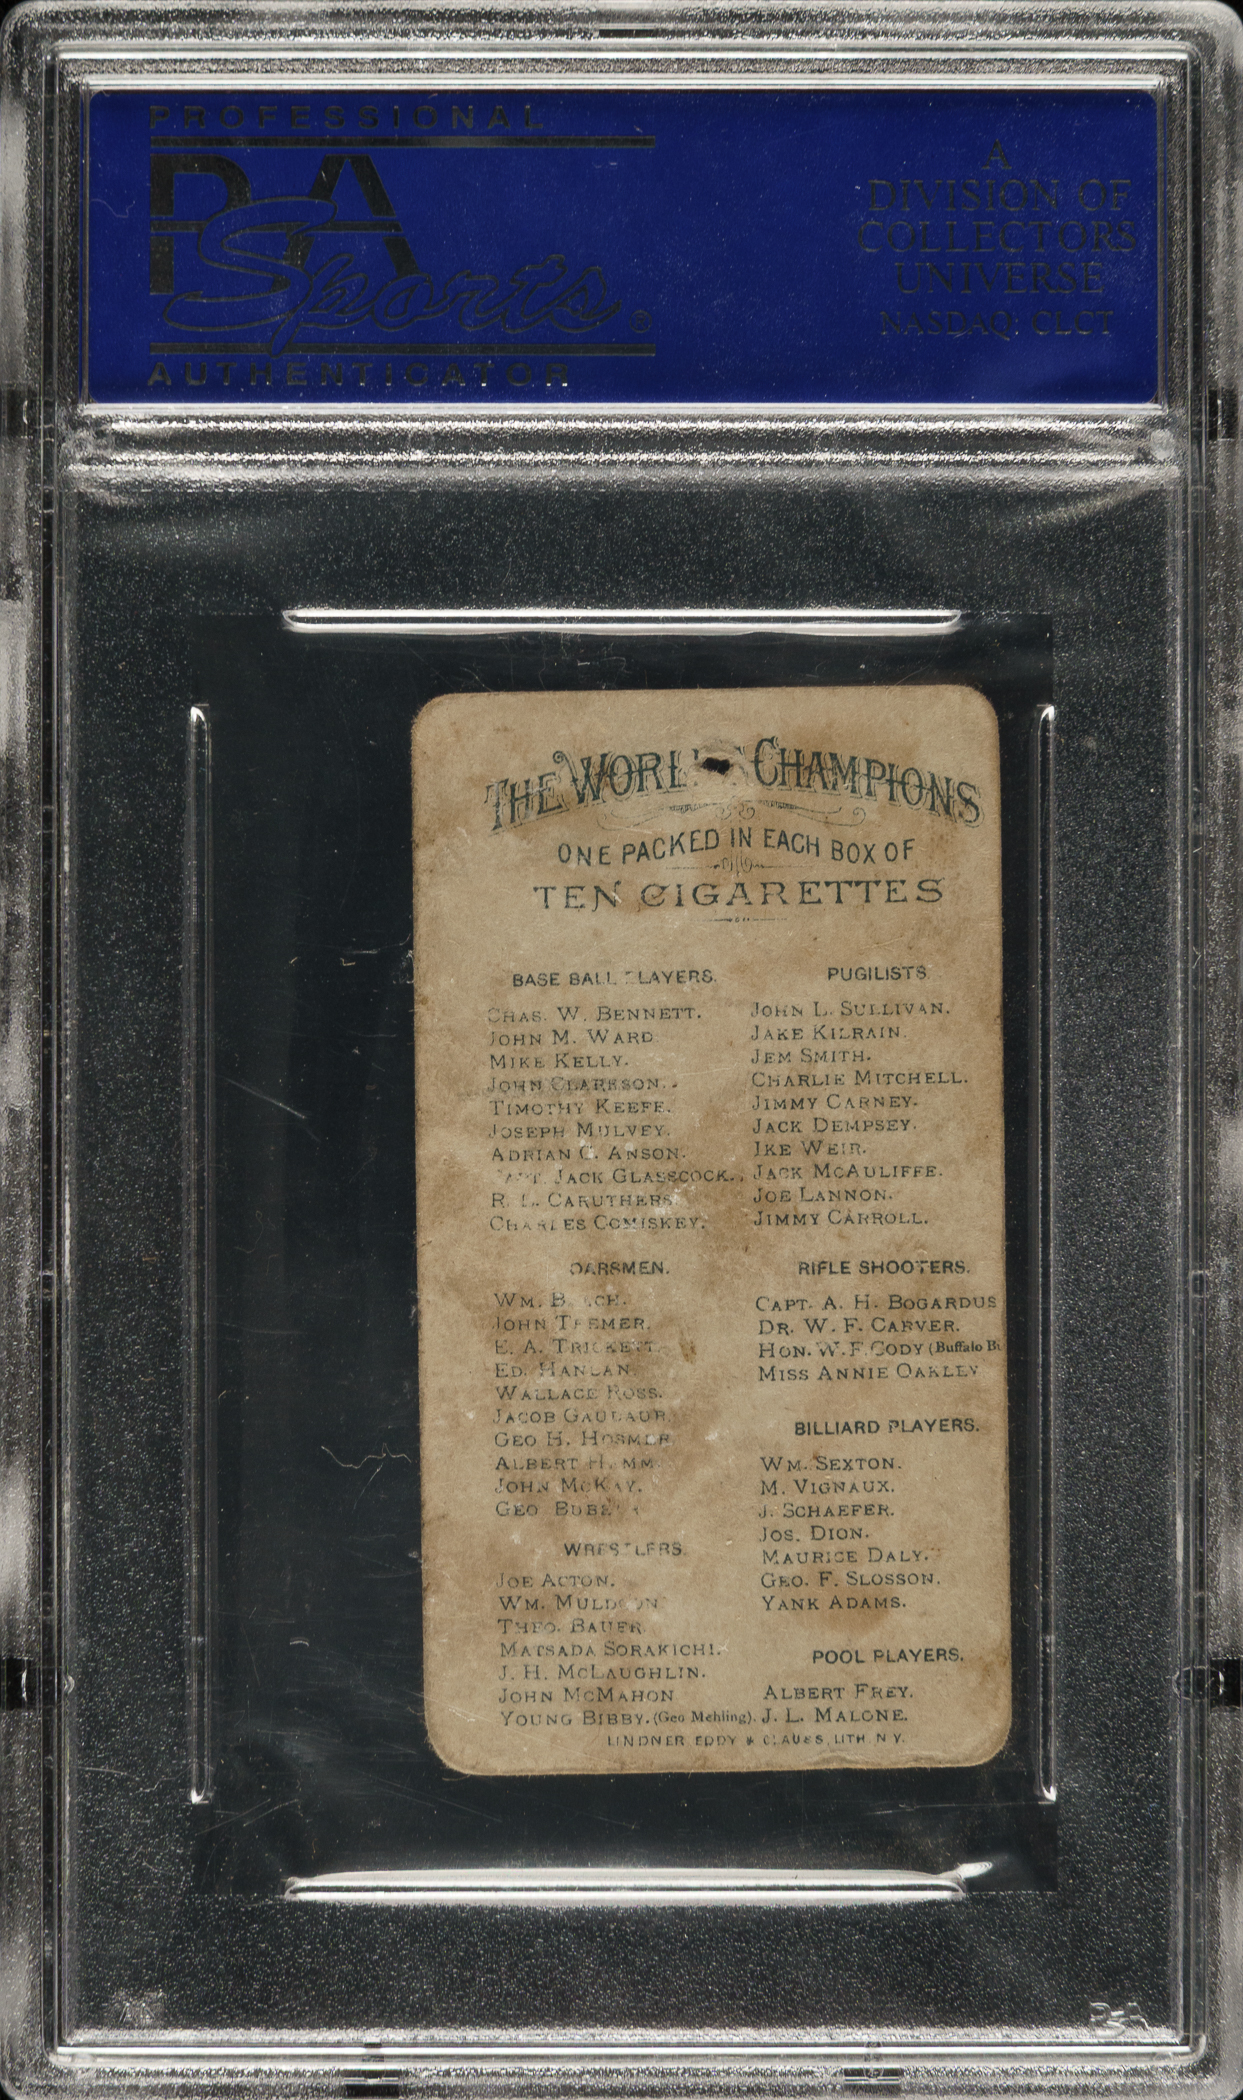 PROFESSIONAL
PSA
Sports®
AUTHENTICATOR
A
DIVISION OF
COLLECTORS
UNIVERSE
NASDAQ: CLCT
THE WORL CHAMPIONS
ONE PACKED IN EACH BOX OF
TEN CIGARETTES
BASE BALL LAYERS.
CHAS. W. BENNETT.
JOHN M. WARD.
MIKE KELLY.
JOHN CLARKSON.
TIMOTHY KEEFE.
JOSEPH MULVEY.
ADRIAN C. ANSON.
CAPT. JACK GLASSCOCK.
R. L. CARUTHERS
CHARLES COMISKEY.
OARSMEN.
WM. B CH.
JOHN TEEMER.
E. A. TRICKETT.
ED. HANLAN.
WALLACE ROSS.
JACOB GAUDAUR.
GEO H. HOSMER
ALBERT H MM.
JOHN McKAY.
GEO BUBE
WRESTLERS.
JOE ACTON.
WM. MULDOON
THEO. BAUER
MATSADA SORAKICHI.
J. H. McLAUGHLIN.
JOHN McMAHON
YOUNG BIBBY. (Geo Mehling).
PUGILISTS
JOHN L. SULLIVAN.
JAKE KILRAIN.
JEM SMITH.
CHARLIE MITCHELL.
JIMMY CARNEY.
JACK DEMPSEY.
IKE WEIR.
JACK McAULIFFE.
JOE LANNON.
JIMMY CARROLL.
RIFLE SHOOTERS.
CAPT. A. H. BOGARDUS
DR. W. F. CARVER.
HON. W. F. CODY (Buffalo Bi
MISS ANNIE OAKLEY
BILLIARD PLAYERS.
WM. SEXTON.
M. VIGNAUX.
J. SCHAEFER.
JOS. DION.
MAURICE DALY.
GEO. F. SLOSSON.
YANK ADAMS.
POOL PLAYERS.
ALBERT FREY.
J. L. MALONE.
LINDNER EDDY & CLAUSS, LITH. N.Y.
PSA